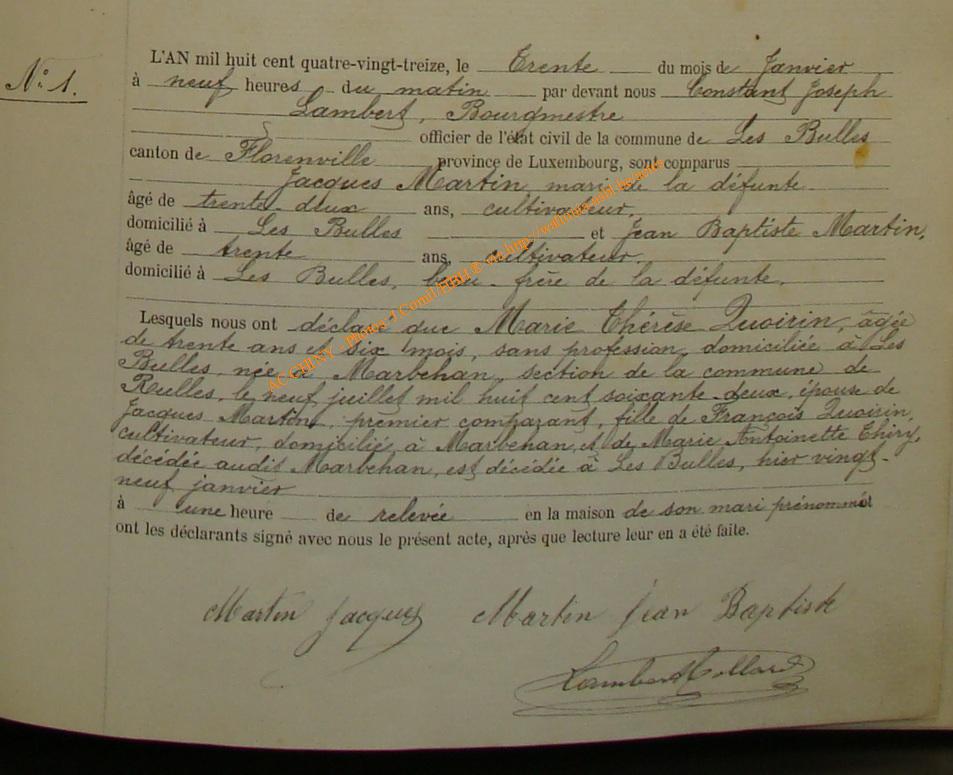 N° 1.
L'AN mil huit cent quatre-vingt-treize, le Trente du mois de Janvier
à neuf heures du matin par devant nous Constant Joseph
Lambert, Bourgmestre
officier de l'état civil de la commune de Les Bulles
canton de Florenville province de Luxembourg, sont comparus
Jacques Martin, mari de la défunte
âgé de trente-deux ans, cultivateur,
domicilié à Les Bulles et Jean Baptiste Martin,
âgé de trente ans, cultivateur,
domicilié à Les Bulles, beau-frère de la défunte.
Lesquels nous ont déclaré que Marie Thérèse Quoirin, âgée
de trente ans et six mois, sans profession, domiciliée à Les
Bulles, née à Marbehan, section de la commune de
Rulles, le neuf juillet mil huit cent soixante-deux, épouse de
Jacques Martin, premier comparant, fille de François Quoirin,
cultivateur, domicilié à Marbehan, et de Marie Antoinette Thiry,
décédée audit Marbehan, est décédée à Les Bulles, hier vingt-
neuf janvier
à une heure de relevée en la maison de son mari prénommé et
ont les déclarants signé avec nous le présent acte, après que lecture leur en a été faite.
Martin Jacques Martin Jean Baptiste
Lambert
AC CHINY - Photos J Comil/HIBLE via http://